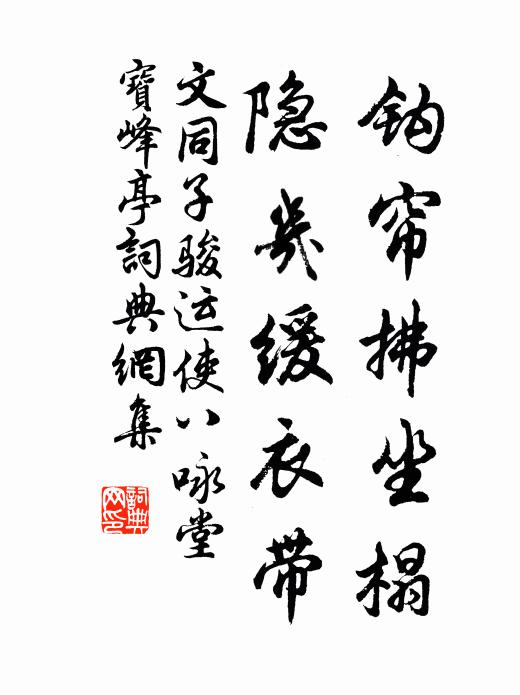 钩帘拂坐榻
隐几缓衣带
文同子骏运使八咏堂
寳峰亭詞典網集
詞典网印